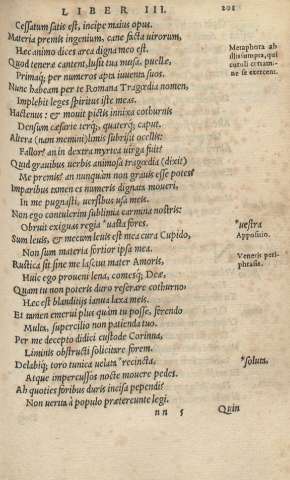 LIBER III. 201
Cessatum satis est, incipe maius opus.
Materia premis ingenium, cane facta uirorum,
Hæc animo dices area digna meo est.
Metaphora ab
Quod teneræ cantent, lusit tua musa, puellæ,
Primaq; per numeros acta iuuenta suos.
ne se exercent.
Nunc habeam per te Romana Tragœdia nomen,
Implebit leges spiritus iste meas.
Hactenus: & mouit pictis innixa cothurnis
Densum cæsarie terq;, quaterq; caput.
Altera (nam memini) limis subrisit ocellis:
Fallor? an in dextra myrtea uirga fuit?
Quid grauibus uerbis animosa tragœdia (dixit)
Me premis? an nunquam non grauis esse potes?
Imparibus tamen es numeris dignata moueri,
In me pugnasti, uersibus usa meis.
Non ego contulerim sublimia carmina nostris:
Obruit exiguas regia *uasta fores.
*uestra
Sum leuis, & mecum leuis est mea cura Cupido,
Appositio.
Non sum materia fortior ipsa mea.
Rustica sit sine me lasciui mater Amoris,
Veneris peri-
phrasis.
Huic ego proueni lena, comesq; Deæ.
Quam tu non poteris duro reserare cothurno:
Hæc est blanditijs ianua laxa meis.
Et tamen emerui plus quàm tu posse, ferendo
Multa, supercilio non patienda tuo.
Per me decepto didici custode Corinna,
Liminis obstructi solicitare forem.
Delabiq; toro tunica uelata *recincta,
*soluta.
Atque impercussos nocte mouere pedes.
Ab quoties foribus duris incisa pependi?
Non uerita à populo prætereunte legi.
nn 5 Quin